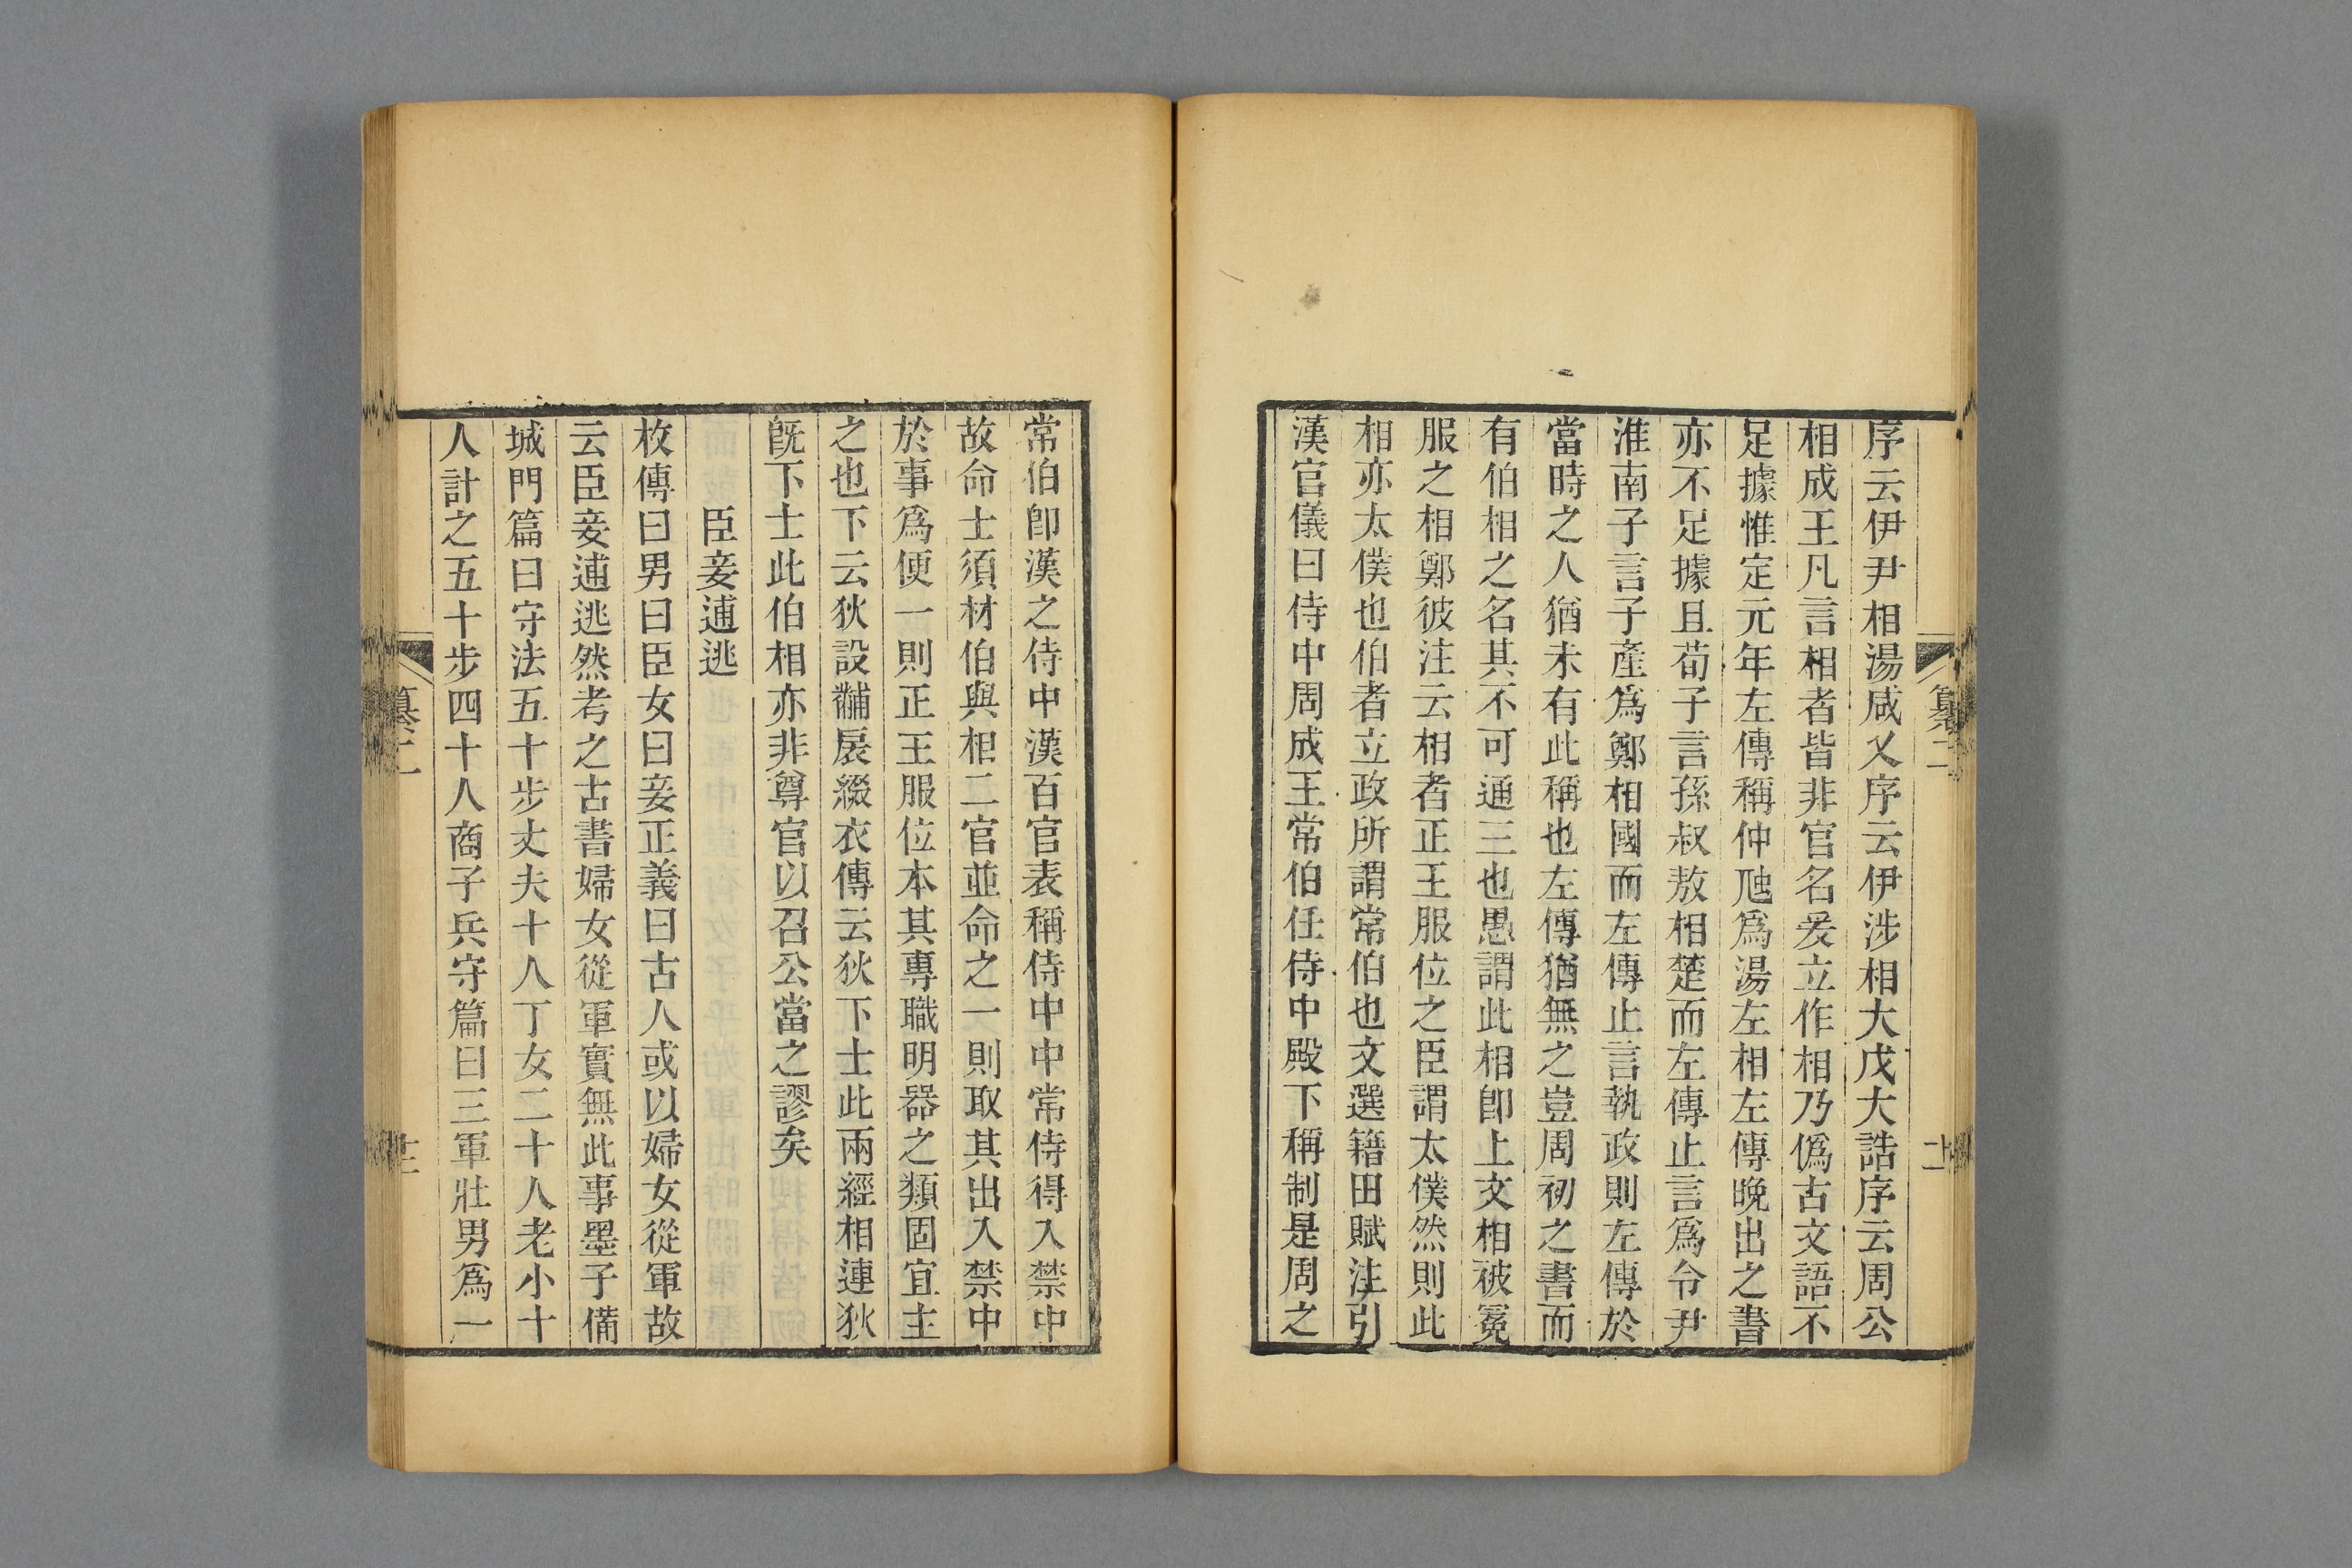 序云伊尹相湯咸乂序云伊涉相大戊大誥序云周公
相成王凡言相者皆非官名爰立作相乃僞古文語不
足據惟定元年左傳稱仲虺爲湯左相左傳晚出之書
亦不足據且荀子言孫叔敖相楚而左傳止言爲令尹
淮南子言子產爲鄭相國而左傳止言執政則左傳於
當時之人猶未有此稱也左傳猶無之豈周初之書而
有伯相之名其不可通三也愚謂此相卽上文相被冕
服之相鄭彼注云相者正王服位之臣謂太僕然則此
相亦太僕也伯者立政所謂常伯也文選籍田賦注引
漢官儀曰侍中周成王常伯任侍中殿下稱制是周之
常伯卽漢之侍中漢百官表稱侍中中常侍得入禁中
故命士須材伯與相二官並命之一則取其出入禁中
於事爲便一則正王服位本其專職明器之類固宜主
之也下云狄設黼扆綴衣傳云狄下士此兩經相連狄
旣下士此伯相亦非尊官以召公當之謬矣
臣妾逋逃
枚傳曰男曰臣女曰妾正義曰古人或以婦女從軍故
云臣妾逋逃然考之古書婦女從軍實無此事墨子備
城門篇曰守法五十步丈夫十人丁女二十人老小十
人計之五十步四十人商子兵守篇曰三軍壯男爲一
纂二